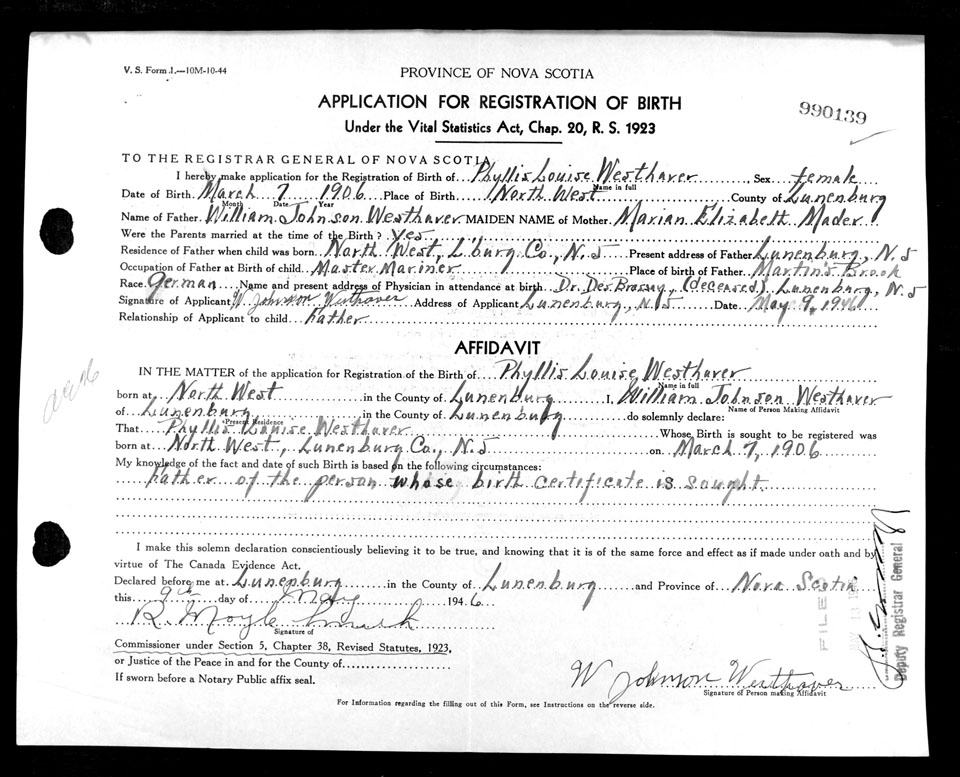 V. S. Form 1.—10M-10-44
PROVINCE OF NOVA SCOTIA
APPLICATION FOR REGISTRATION OF BIRTH
990139
Under the Vital Statistics Act, Chap. 20, R. S. 1923
TO THE REGISTRAR GENERAL OF NOVA SCOTIA
I hereby make application for the Registration of Birth of Phyllis Louise Westhaver Sex female
Name in full
Date of Birth March 7 1906 Place of Birth North West County of Lunenburg
Month Date Year
Name of Father William Johnson Westhaver MAIDEN NAME of Mother Marian Elizabeth Mader
Were the Parents married at the time of the Birth? yes
Residence of Father when child was born North West, L'burg Co., N.S Present address of Father Lunenburg, N.S
Occupation of Father at Birth of child Master Mariner Place of birth of Father Martin's Brook
Race German Name and present address of Physician in attendance at birth Dr. Des Brasay, (deceased), Lunenburg, N.S
Signature of Applicant W Johnson Westhaver Address of Applicant Lunenburg, N.S Date May 9, 1946
Relationship of Applicant to child Father
AFFIDAVIT
IN THE MATTER of the application for Registration of the Birth of Phyllis Louise Westhaver
Name in full
born at North West in the County of Lunenburg I, William Johnson Westhaver
Name of Person Making Affidavit
of Lunenburg in the County of Lunenburg do solemnly declare:
Present Residence
That Phyllis Louise Westhaver Whose Birth is sought to be registered was
born at North West, Lunenburg Co., N.S on March 7, 1906
My knowledge of the fact and date of such Birth is based on the following circumstances:
Father of the person whose birth certificate is sought.
I make this solemn declaration conscientiously believing it to be true, and knowing that it is of the same force and effect as if made under oath and by
virtue of The Canada Evidence Act.
Declared before me at Lunenburg in the County of Lunenburg and Province of Nova Scotia
this 9th day of May 1946
R. Moyle Smith
Signature of
Commissioner under Section 5, Chapter 38, Revised Statutes, 1923,
or Justice of the Peace in and for the County of
If sworn before a Notary Public affix seal.
W Johnson Westhaver
Signature of Person making Affidavit
For Information regarding the filling out of this Form, see Instructions on the reverse side.
FILED
Deputy Registrar General